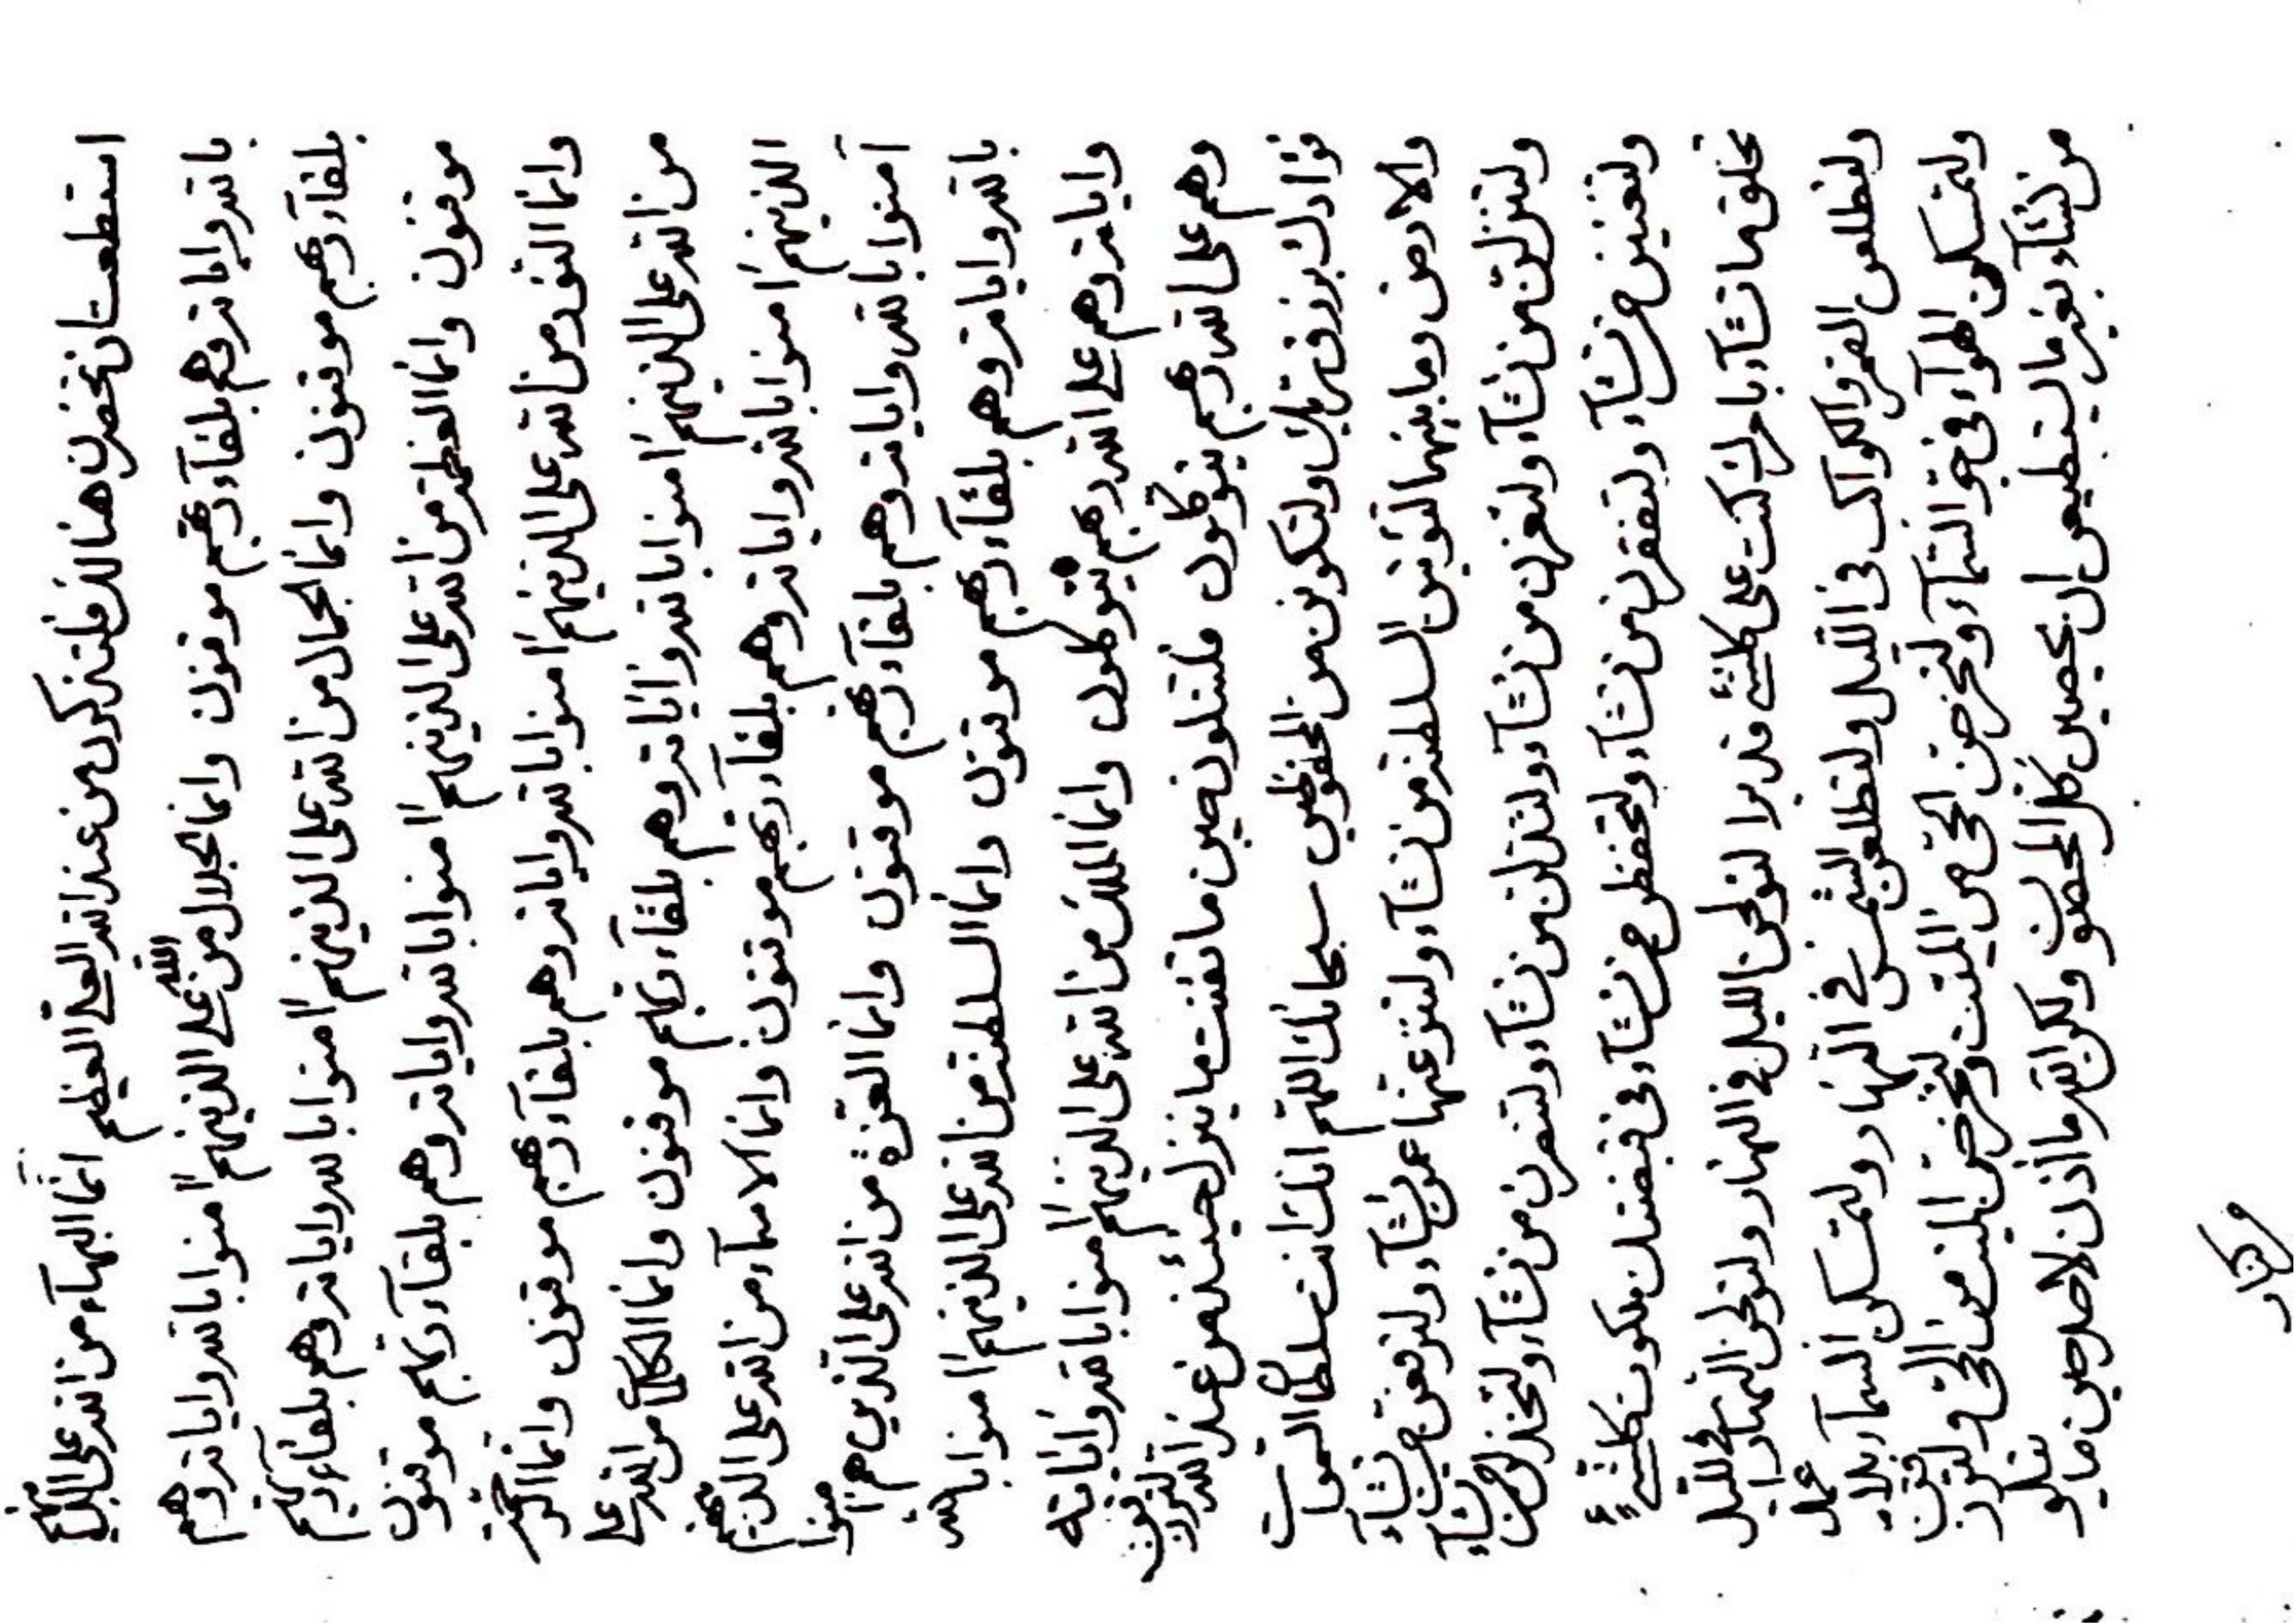 استطعت ان تحضرن هنالك فلتذكرن من عند الله العلي العظيم انما البهآء من الله على الذينهم
بالله وایاته وهم بلقآء ربهم موقنون وانما الجلال من الله على الذينهم امنوا بالله وایاته وهم
بلقآء ربهم موقنون وانما الجمال من الله على الذينهم امنوا بالله وایاته وهم بلقآء ربهم
موقنون وانما العظمة من الله على الذينهم امنوا بالله وایاته وهم بلقآء ربهم موقنون
وانما النور من الله على الذينهم امنوا بالله وایاته وهم بلقآء ربهم موقنون وانما الرحمة
من الله على الذينهم امنوا بالله وایاته وهم بلقآء ربهم موقنون وانما الكلمات من الله على
الذينهم امنوا بالله وایاته وهم بلقآء ربهم موقنون وانما الاسمآء من الله على الذينهم
آمنوا بالله وایاته وهم بلقآء ربهم موقنون وانما العزة من الله على الذين هم امنوا
بالله وایاته وهم بلقآء ربهم موقنون وانما السلطنة من الله على الذينهم امنوا بالله
وایاته وهم على الله ربهم يتوكلون وانما الملك من الله على الذينهم امنوا بالله وایاته
وهم على الله ربهم يتوكلون فلتتلون حين ما تفننت ما ينزل حينئذ من عند الله
فؤادك برزق ربك ولتكونن من المحفوظين سبحانك اللهم انك انت سلطان السموات
والارض وما بينهما لتؤتين السلطنة من تشآء ولتنزعنها عمن تشآء ولترفعن من تشآء
ولتنزلن من تشآء ولتعزن من تشآء ولتذلن من تشآء ولتنصرن من تشآء ولتخذلن من تشآء
ولتغنين من تشآء ولتفقرن من تشآء ولتحفظن من تشآء في قبضتك ملكوت كلشيء
تخلق ما تشآء بامرك انك كنت على كلشيء قديرا لتولجن الليل في النهار ولتولجن النهار في الليل
ولتطلعن القمر والكواكب في الليل ولتطلعن الشمس في النهار ولتمسكن السمآء بلا عمد
ولتمسكن الهوآء في جو السمآء ولتخرجن الحي من الميت ولتخرجن الميت من الحي ولترزقن
من تشآء بغير ما يستطيعن ان يحصين كل المحصون ولكن الله ما اذن لاحد من ما يتلو